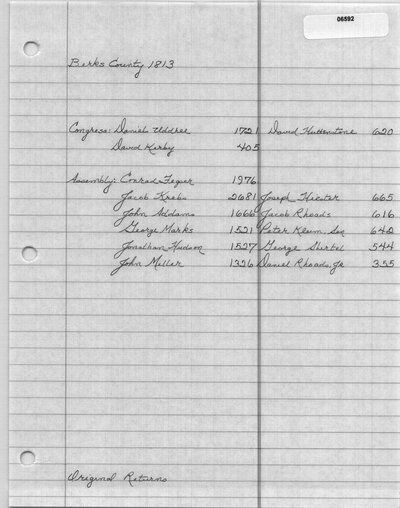 06592
Berks County 1813
Congress: Daniel Uddree 1721 David Huttenstone 620
David Kirby 405
Assembly: Conrad Feger 1976
Jacob Krebs 2681 Joseph Hiester 665
John Addams 1666 Jacob Rhoads 616
George Marks 1521 Peter Klum. Sen 642
Jonathan Hudson 1527 George Shirtel 544
John Miller 1356 Daniel Rhoads, Jr 355
Original Returns